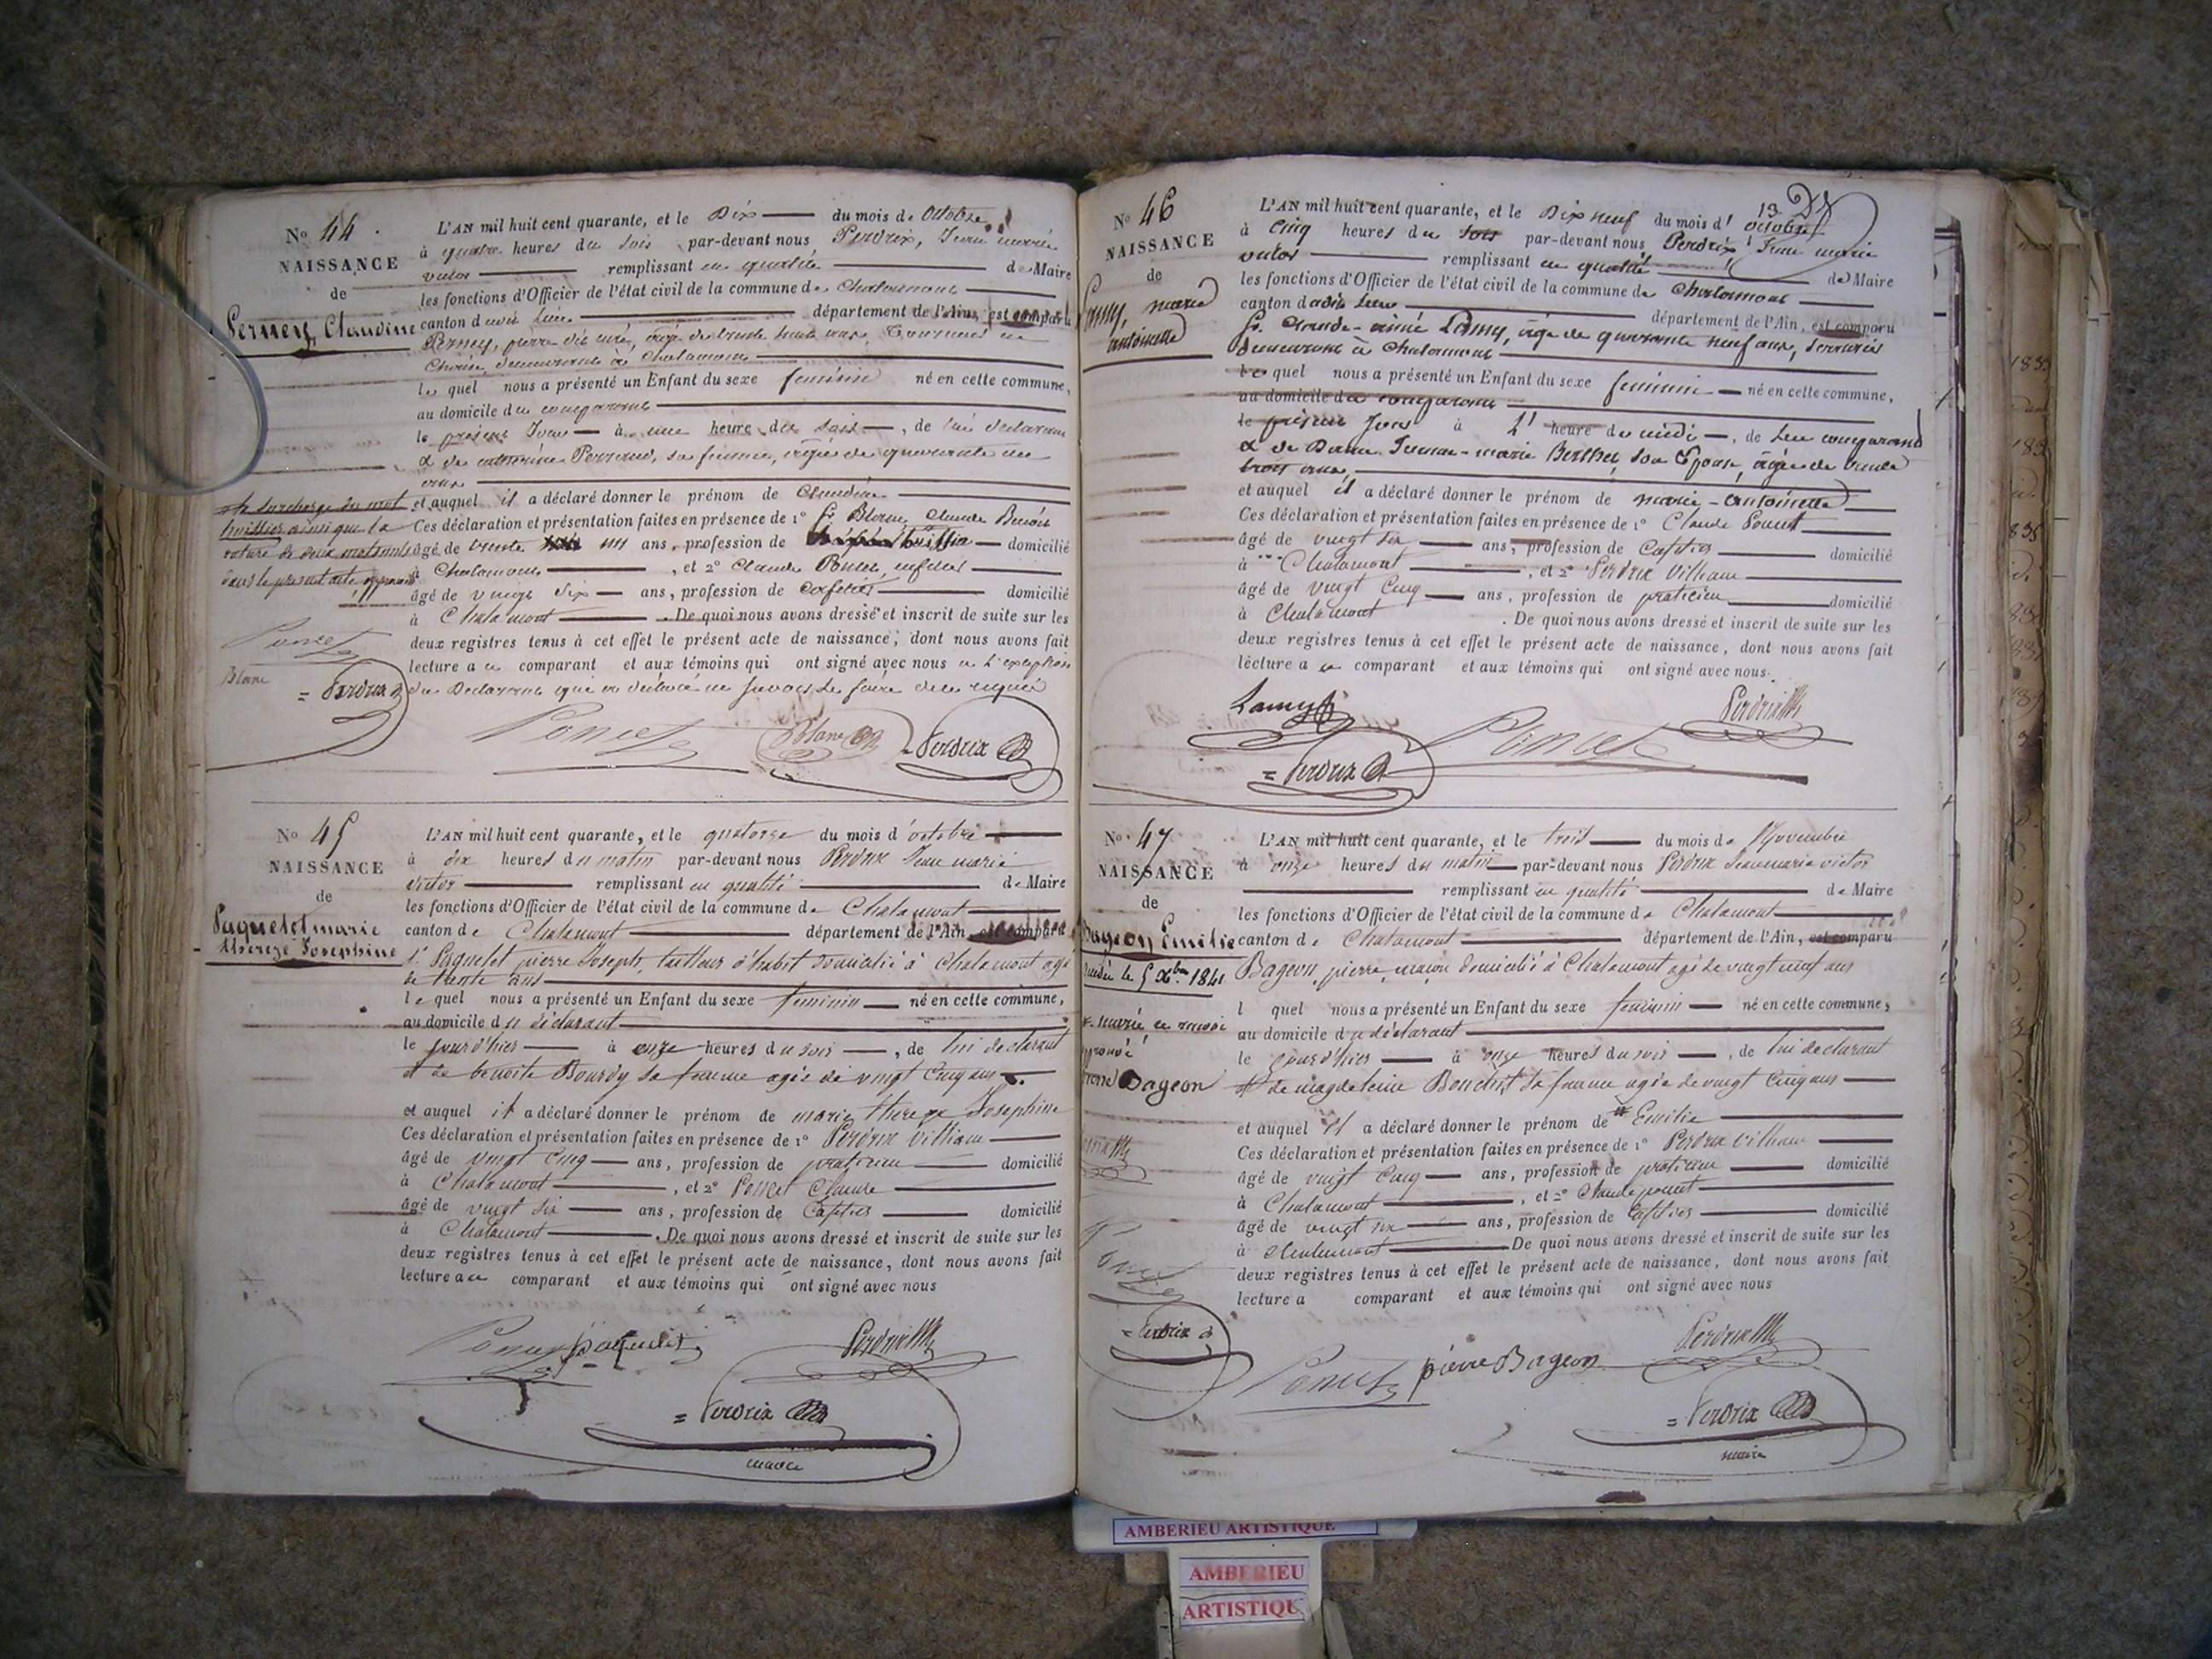 No 44
NAISSANCE
de
Perney, Claudine
L'AN mil huit cent quarante, et le Dix du mois de Octobre
à quatre heures du soir par-devant nous Perdrix, Jean marie
victor remplissant en qualité de Maire
les fonctions d'Officier de l'état civil de la commune de Chalamont
canton dudit lieu département de l'Ain, est comparu
Perney, pierre, agé de trente huit ans, Tourneur en
Chaise, demeurant à Chalamont
le quel nous a présenté un Enfant du sexe feminin né en cette commune,
au domicile du comparant
le présent Jour à une heure du soir, de lui declarant
& de catherine Perraud, sa femme, agée de quarante un
ans
et auquel il a déclaré donner le prénom de Claudine
Ces déclaration et présentation faites en présence de 1° Sr Blanc, Claude Benoit
âgé de trente ans, profession de huissier domicilié
à Chalamont, et 2° Claude Poncet
âgé de vingt six ans, profession de Cafetier domicilié
à Chalamont. De quoi nous avons dressé et inscrit de suite sur les
deux registres tenus à cet effet le présent acte de naissance, dont nous avons fait
lecture a u comparant et aux témoins qui ont signé avec nous a l'exception
du Declarant qui a déclaré ne savoir le faire de ce requis
la surcharge du mot
huissier ainsi que la
rature de deux mots nuls
dans le present acte approuvé
Poncet
Blanc
= Perdrix
Poncet Blanc = Perdrix
No 45
NAISSANCE
de
Paquelet marie
thereze Josephine
L'AN mil huit cent quarante, et le quatorze du mois d'octobre
à dix heures du matin par-devant nous Perdrix Jean marie
victor remplissant en qualité de Maire
les fonctions d'Officier de l'état civil de la commune de Chalamont
canton de Chalamont département de l'Ain, est comparu
Sr Paquelet pierre Joseph, tailleur d'habit domicilié à Chalamont agé
de trente ans
le quel nous a présenté un Enfant du sexe feminin né en cette commune,
au domicile du déclarant
le jour d'hier à onze heures du soir, de lui declarant
et de benoite Bourdy sa femme agée de vingt cinq ans
et auquel il a déclaré donner le prénom de marie thereze Josephine
Ces déclaration et présentation faites en présence de 1° Perdrix Villiam
âgé de vingt cinq ans, profession de praticien domicilié
à Chalamont, et 2° Poncet Claude
âgé de vingt six ans, profession de Cafetier domicilié
à Chalamont. De quoi nous avons dressé et inscrit de suite sur les
deux registres tenus à cet effet le présent acte de naissance, dont nous avons fait
lecture au comparant et aux témoins qui ont signé avec nous
Poncet paquelet Perdrix
= Perdrix
maire
No 46
NAISSANCE
de
Lamy, marie
antoinette
13
L'AN mil huit cent quarante, et le Dix neuf du mois d'octobre
à Cinq heures du soir par-devant nous Perdrix Jean marie
victor remplissant en qualité de Maire
les fonctions d'Officier de l'état civil de la commune de Chalamont
canton dudit lieu département de l'Ain, est comparu
Sr. Claude-aimé Lamy, age de quarante neuf ans, serrurier
demeurant à Chalamont
le quel nous a présenté un Enfant du sexe feminin né en cette commune,
au domicile du comparant
le présent Jour à l' heure de midi, de lui comparant
& de Dame Jeanne-marie Berthet, son Epouse, agée de trente
trois ans
et auquel il a déclaré donner le prénom de marie-antoinette
Ces déclaration et présentation faites en présence de 1° Claude Poncet
âgé de vingt six ans, profession de Cafetier domicilié
à Chalamont, et 2° Perdrix Villiam
âgé de vingt Cinq ans, profession de praticien domicilié
à Chalamont. De quoi nous avons dressé et inscrit de suite sur les
deux registres tenus à cet effet le présent acte de naissance, dont nous avons fait
lecture a u comparant et aux témoins qui ont signé avec nous.
Lamy Perdrix
= Perdrix Poncet
No. 47
NAISSANCE
de
Bageon Emilie
décédée le 5 Xbre 1841
L'AN mil huit cent quarante, et le trois du mois de Novembre
à onze heures du matin par-devant nous Perdrix Jean marie victor
remplissant en qualité de Maire
les fonctions d'Officier de l'état civil de la commune de Chalamont
canton de Chalamont département de l'Ain, est comparu
Bageon pierre, maçon domicilié à Chalamont agé de vingt neuf ans
l quel nous a présenté un Enfant du sexe feminin né en cette commune,
au domicile du déclarant
le jour d'hier à onze heures du soir, de lui declarant
et de magdeleine Bouchet sa femme agée de vingt cinq ans
et auquel il a déclaré donner le prénom de Emilie
Ces déclaration et présentation faites en présence de 1° Perdrix Villiam
âgé de vingt cinq ans, profession de praticien domicilié
à Chalamont, et 2° Claude poncet
âgé de vingt six ans, profession de Cafetier domicilié
à Chalamont De quoi nous avons dressé et inscrit de suite sur les
deux registres tenus à cet effet le présent acte de naissance, dont nous avons fait
lecture a comparant et aux témoins qui ont signé avec nous
Bageon
= Perdrix
Poncet pierre Bageon Perdrix
= Perdrix
maire
AMBERIEU ARTISTIQUE
AMBERIEU
ARTISTIQU